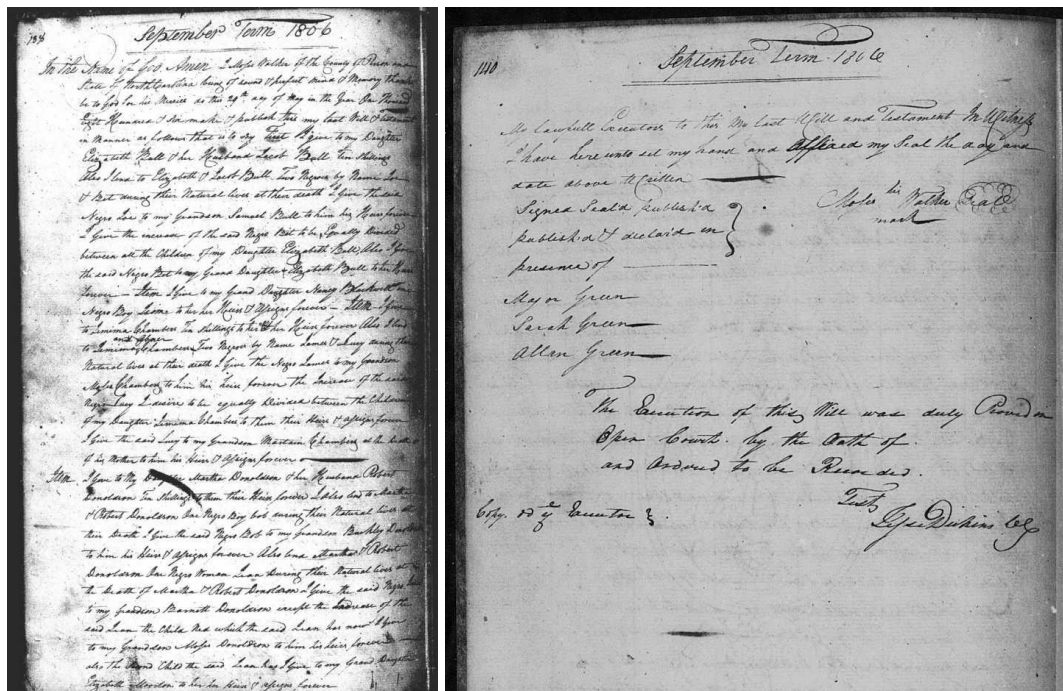 138
September Term 1806
In the Name of God Amen I Moses Walker of the County of Person and
State of North Carolina being of sound & perfect mind & Memory thanks
be to God for his Mercies do this 29th day of May in the Year One Thousand
Eight Hundred & Six make & publish this my last Will & Testament
in Manner as follows that is to say first I give to my Daughter
Elizabeth Bull & her Husband Jacob Bull ten shillings
Also I lend to Elizabeth & Jacob Bull Two Negroes by Name
& Bet during their Natural lives at their death I Give the said
Negro to my Grandson Samuel Bull to him his Heirs forever
I Give the increase of the said Negro Bet to be Equally Divided
between all the Children of my Daughter Elizabeth Bull Also I Give
the said Negro Bet to my Grand Daughter Elizabeth Bull to her Heirs
forever — Item I Give to my Grand Daughter Nancy Blackwell one
Negro Boy to her her Heirs & Assigns forever — Item I give
to Jemima Chambers Ten Shillings to her & her Heirs forever Also I lend
and Abner
to Jemima Chambers Two Negroes by Name James & Lucy during their
Natural lives at their death I Give the Negro James to my Grandson
Moses Chambers to him his heirs forever the Increase of the said
Negro Lucy I desire to be equally Divided between the Children
of my Daughter Jemima Chambers to them their Heirs & Assigns forever
I Give the said Lucy to my Grandson Chambers at the Death
of his Mother to him his Heirs & Assigns forever
Item I Give to My Daughter Martha Donoldson & her Husband Robert
Donoldson Ten Shillings to them their Heirs forever I Also lend to Martha
& Robert Donoldson One Negro Boy Bob during their Natural lives at
their Death I Give the said Negro Bob to my grandson Donoldson
to him his Heirs & Assigns forever Also lend Martha & Robert
Donoldson One Negro Woman Lean During their Natural lives at
the Death of Martha & Robert Donoldson I Give the said Negro
to my grandson Barnett Donoldson except the Increase of the
said Lean the Child Ned which the said Lean has now I Give
to my Grandson Moses Donoldson to him his heirs forever
also the second Child the said Lean has I give to my Grand Daughter
Elizabeth to her her Heirs & Assigns forever
140
September Term 1806
My Lawfull Executors to this My last Will and Testament In Witness
I have here unto set my hand and Affixed my Seal the day and
date above Written
Signed Seal'd publish'd
publish'd & declaid in
presence of
his
Moses Walker Seal
mark
Major Green
Sarah Green
Allan Green
The Execution of this Will was duly Proved in
Open Court by the Oath of
and Ordered to be Recorded.
Test
Copy. Executor
Jesse Dickins